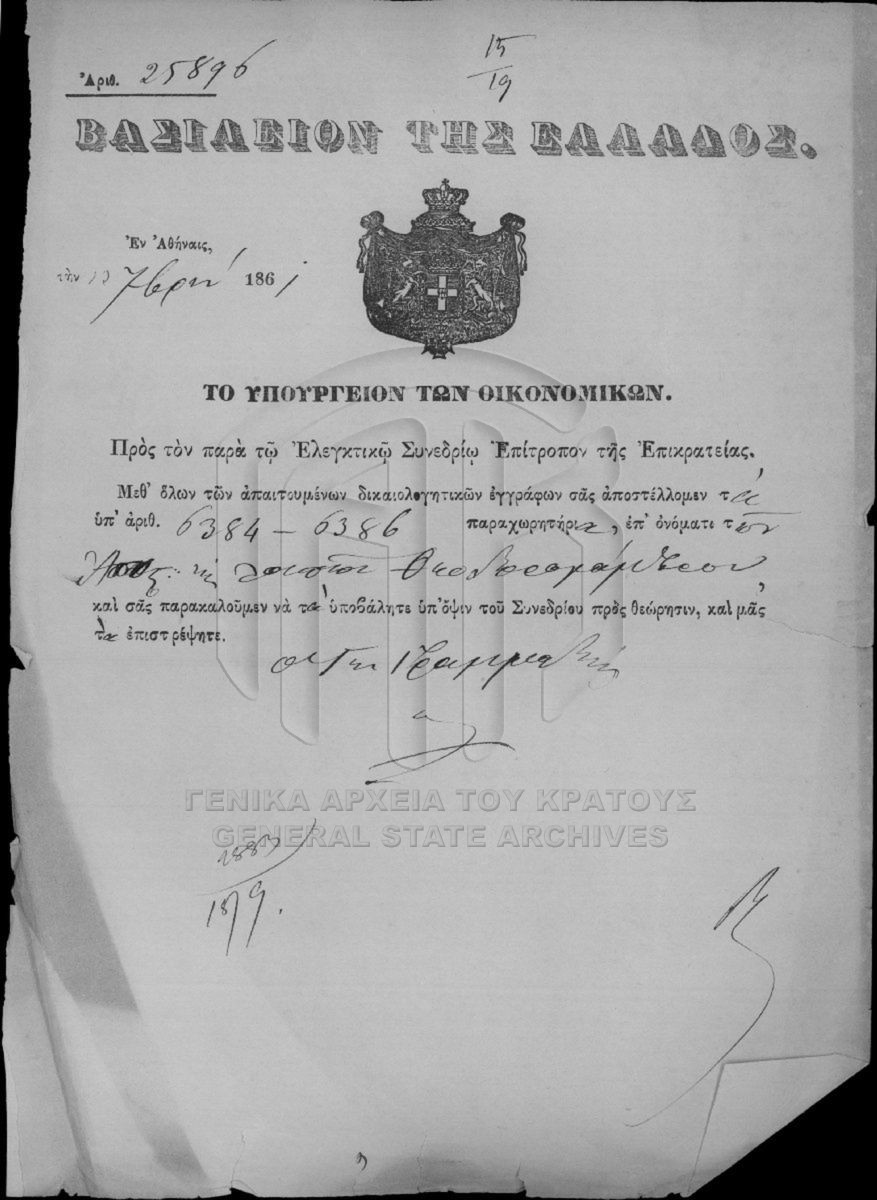 Ἀριθ. 25896
15
19
ΒΑΣΙΛΕΙΟΝ ΤΗΣ ΕΛΛΑΔΟΣ.
Ἐν Ἀθήναις,
τὴν 7βρίου 1861
ΤΟ ΥΠΟΥΡΓΕΙΟΝ ΤΩΝ ΟΙΚΟΝΟΜΙΚΩΝ.
Πρὸς τὸν παρὰ τῷ Ἐλεγκτικῷ Συνεδρίῳ Ἐπίτροπον τῆς Ἐπικρατείας.
Μεθ' ὅλων τῶν ἀπαιτουμένων δικαιολογητικῶν ἐγγράφων σᾶς ἀποστέλλομεν τὰ
ὑπ' ἀριθ. 6384 – 6386 παραχωρητήρια, ἐπ' ὀνόματι τῶν
καὶ σᾶς παρακαλοῦμεν νὰ τὰ ὑποβάλητε ὑπ' ὄψιν τοῦ Συνεδρίου πρὸς θεώρησιν, καὶ μᾶς
τὰ ἐπιστρέψητε.
ΓΕΝΙΚΑ ΑΡΧΕΙΑ ΤΟΥ ΚΡΑΤΟΥΣ
GENERAL STATE ARCHIVES